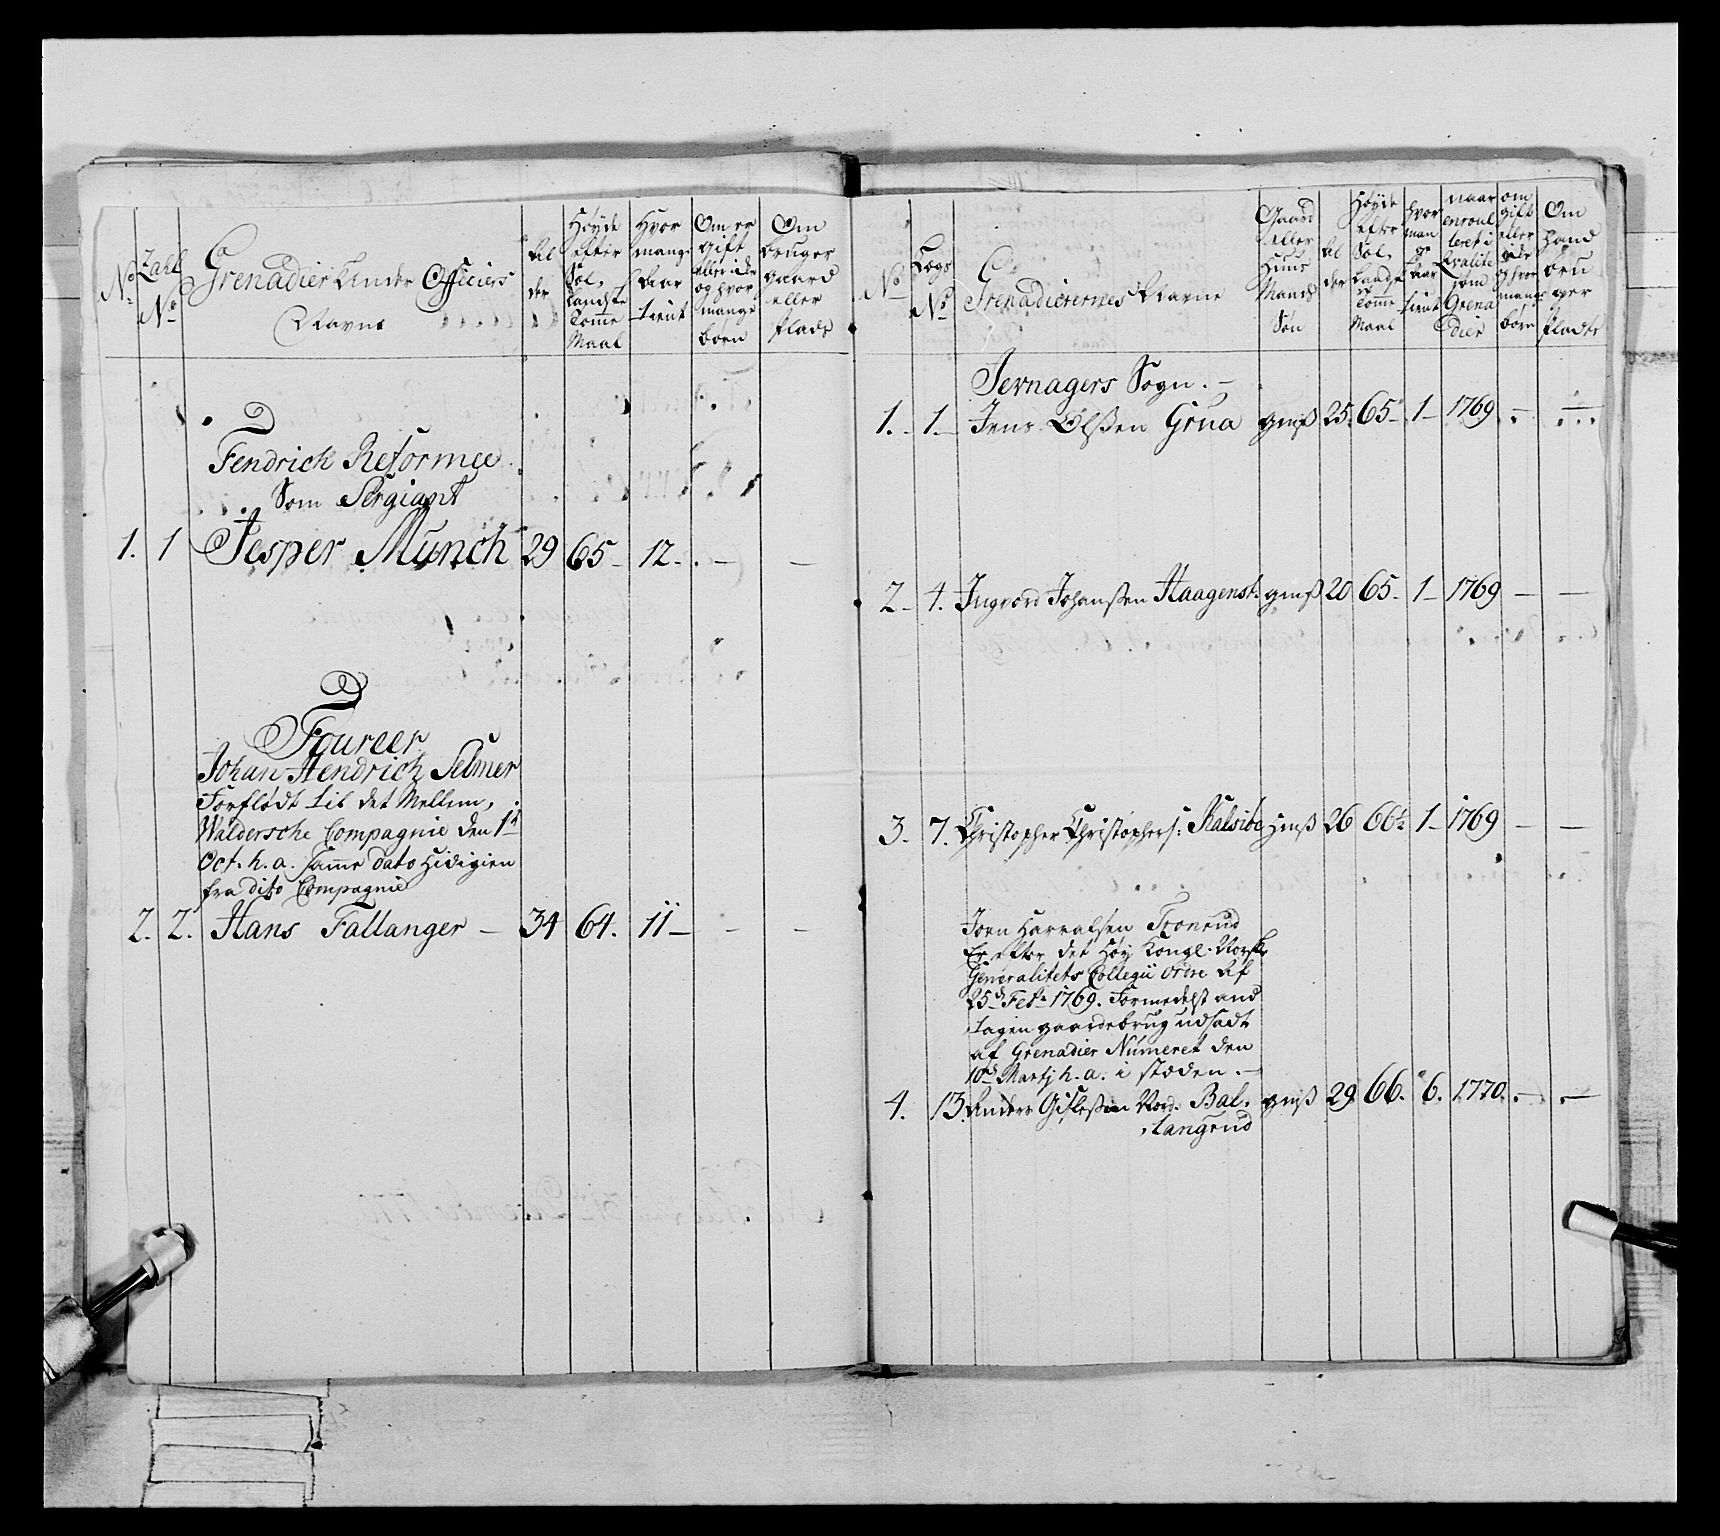 No
Zahl
No
Grenadier Under Officiers
Navne
Al
der
Høyde
efter
Sol.
Landste
Tomme
Maal
Hvor
mange
Aar
tient
Om er
gift
eller icke
og hvor
mange
børn
Om
bruger
gaard
eller
plads
Fendrich Reformee
Som Sergiant
1. 1 Jesper Munch 29 65 12 - -
Foureer
Johan Hendrich Selmer
Forflødt til det Mellem,
Waldersche Compagnie den 1te
Oct. h. a. samme dato hidigien
fra dito Compagnie
2. 2. Hans Fallanger - 34 64. 11 - - -
No
Logs
No
Grenadierernes Navne
Gaard
eller
Huus
Mands
Søn
Al
der
Høyde
efter
Sol,
Landste
Tomme
Maal
hvor
man
ge
Aar
tient
naar
enroul
leret i
Kvalite
som
Grena
dier
om
gift
eller
icke
og hvor
mange
børn
Om
hand
bru
ger
plads
Jevnagers Sogn. -
1. 1. Jens Olssen Grua gmss 25. 65 - 1 - 1769 - -
2 - 4. Ingvord Johanssen Haagenst: gmss 20 65 - 1 - 1769 - -
3. 7. Christopher Christophers: Kalsibe hmss 26 66½ 1 - 1769 - -
Joen Harralsen Tronrud
Er efter det Høy Kongl. Norske
Generalitets Collegii Ordre af
25de Febr 1769. Formedelst and
tagen gaardebrug udsadt
af Grenadier Numeret den
10de Martj h. a. i stæden. -
4. 13. Anders Gislessen Nord. Bal, gmss 29 66. 6. 1770. - -
langrud